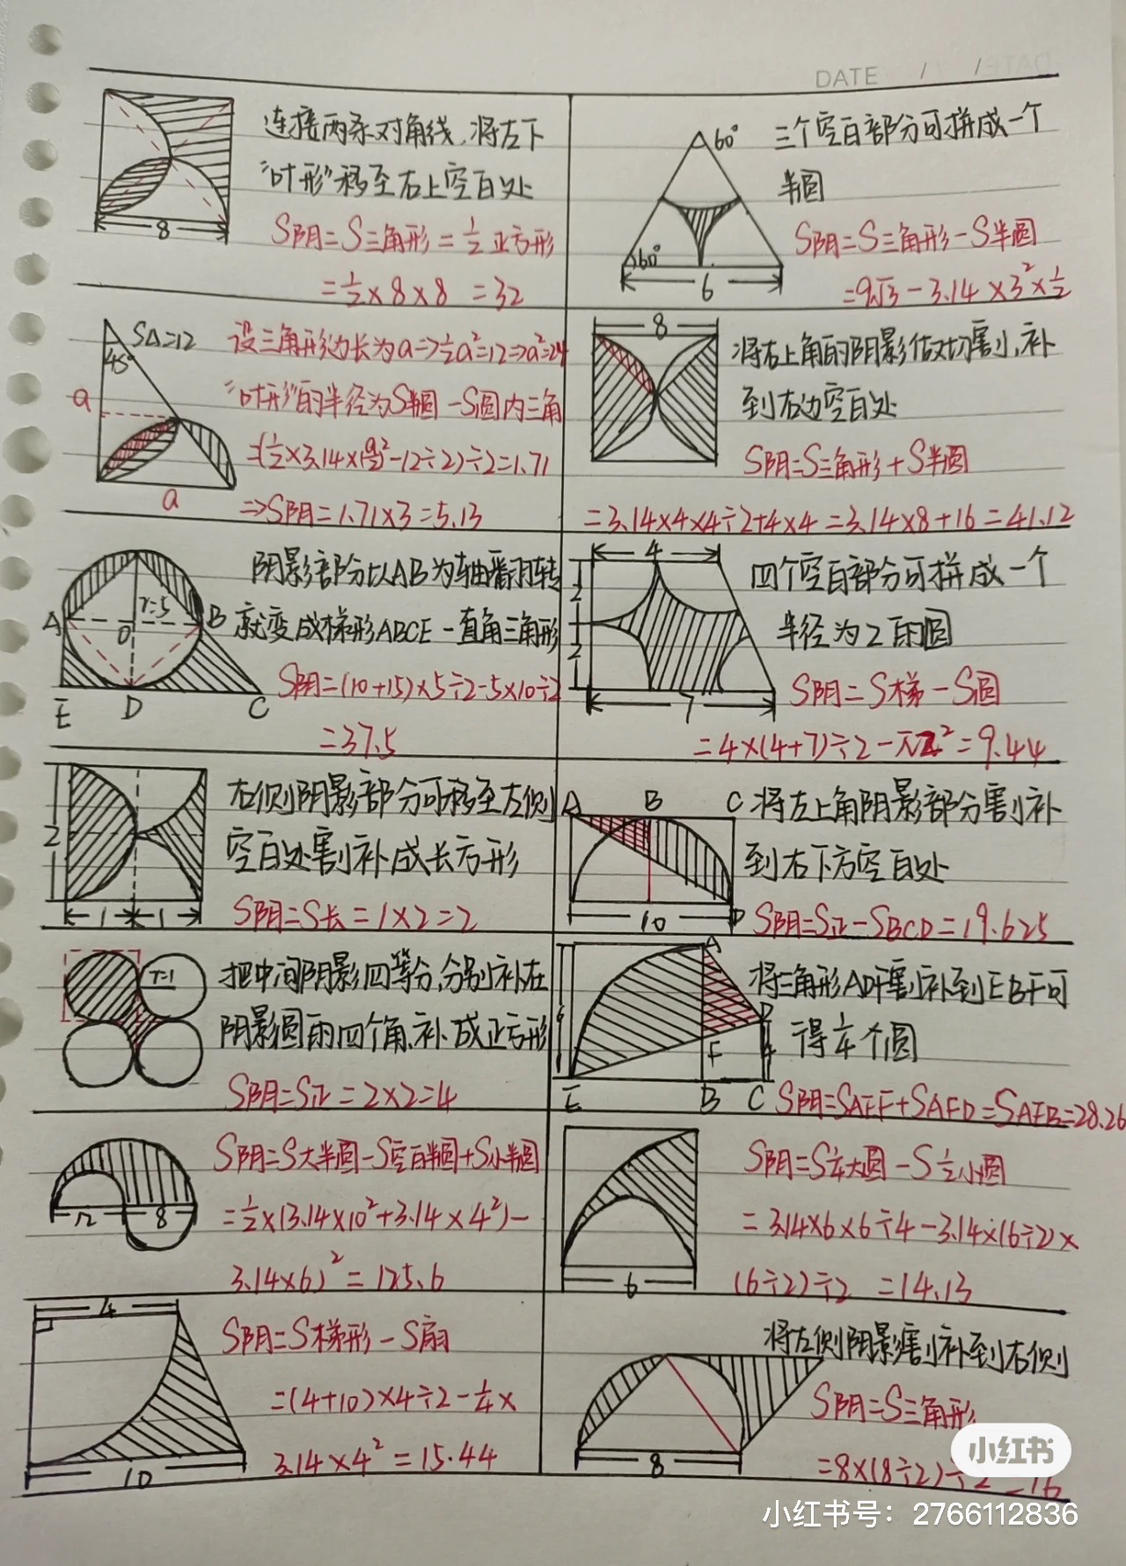 DATE / /
连接两条对角线,将左下
"叶形"移至右上空白处
S阴=S三角形=½正方形
=½×8×8 =32
8
60°
60°
6
三个空白部分可拼成一个
半圆
S阴=S三角形-S半圆
=9√3-3.14×3²×½
S△=12
45°
a
a
设三角形边长为a⇒½a²=12⇒a²=24
"叶形"的半径为S半圆-S圆内三角
=(½×3.14×(a/2)²-12÷2)÷2=1.71
⇒S阴=1.71×3=5.13
8
将右上角的阴影做切割,补
到右边空白处
S阴=S三角形+S半圆
=3.14×4×4÷2+4×4=3.14×8+16=41.12
A
B
r=5
O
E
D
C
阴影部分以AB为轴翻转
就变成梯形ABCE-直角三角形
S阴=(10+15)×5÷2-5×10÷2
=37.5
4
2
2
7
四个空白部分可拼成一个
半径为2的圆
S阴=S梯-S圆
=4×(4+7)÷2-π2²=9.44
2
1
1
右侧阴影部分可移至左侧
空白处割补成长方形
S阴=S长=1×2=2
A
B
C
D
10
将左上角阴影部分割补
到右下方空白处
S阴=S正-SBCD=19.625
r=1
把中间阴影四等分,分别补在
阴影圆的四个角,补成正方形
S阴=S正=2×2=4
A
D
F
4
E
B
C
将三角形ADF割补到EBF可
得¼个圆
S阴=SAEF+SAFD=SAEB=28.26
12
8
S阴=S大半圆-S空白半圆+S小半圆
=½×(3.14×10²+3.14×4²)-
3.14×6)²=125.6
6
S阴=S¼大圆-S½小圆
=3.14×6×6÷4-3.14×(6÷2)×
(6÷2)÷2 =14.13
4
10
S阴=S梯形-S扇
=(4+10)×4÷2-¼×
3.14×4²=15.44
8
将左侧阴影割补到右侧
S阴=S三角形
=8×(8÷2)÷2=16
小红书
小红书号：2766112836